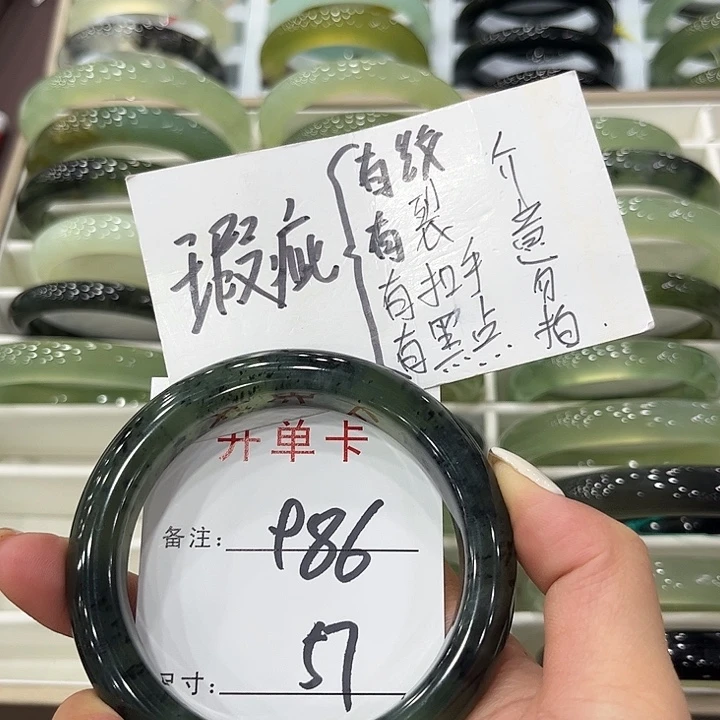 瑕疵
有纹
有裂
有拉手
有黑点
介意勿拍.
开单卡
备注: P86
尺寸: 57